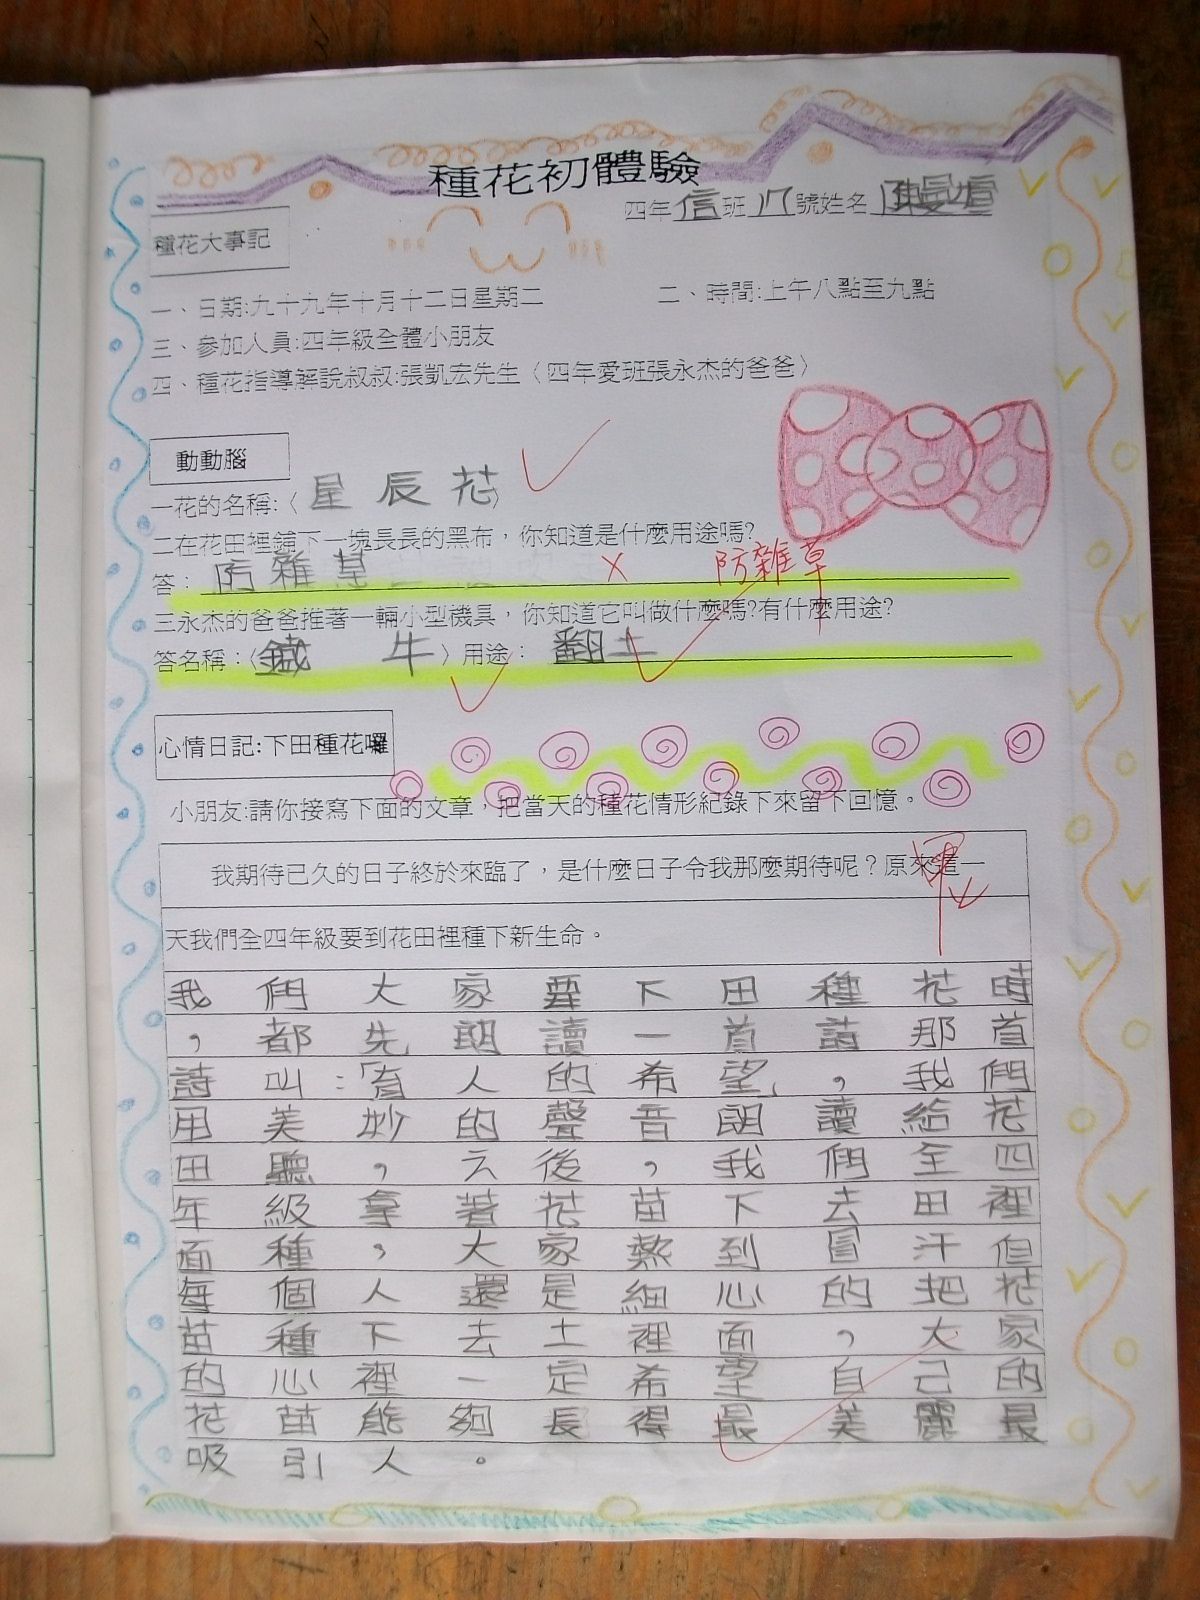 種花初體驗
四年信班八號姓名陳曼瑄
種花大事記
一、日期:九十九年十月十二日星期二 二、時間:上午八點至九點
三、參加人員:四年級全體小朋友
四、種花指導解說叔叔:張凱宏先生〈四年愛班張永杰的爸爸〉
動動腦
一花的名稱:〈星辰花〉
二在花田裡鋪下一塊長長的黑布，你知道是什麼用途嗎?
答：防雜草 防雜草
三永杰的爸爸推著一輛小型機具，你知道它叫做什麼嗎?有什麼用途?
答名稱：〈鐵牛〉用途：翻土
心情日記:下田種花囉
小朋友:請你接寫下面的文章，把當天的種花情形紀錄下來留下回憶。
我期待已久的日子終於來臨了，是什麼日子令我那麼期待呢？原來這一
天我們全四年級要到花田裡種下新生命。
我們大家要下田種花時
，都先朗讀一首詩那首
詩叫：「育人的希望」，我們
用美妙的聲音朗讀給花
田聽，之後，我們全四
年級拿著花苗下去田裡
面種，大家熱到冒汗但
每個人還是細心的把花
苗種下去土裡面，大家
的心裡一定希望自己的
花苗能夠長得最美麗最
吸引人。